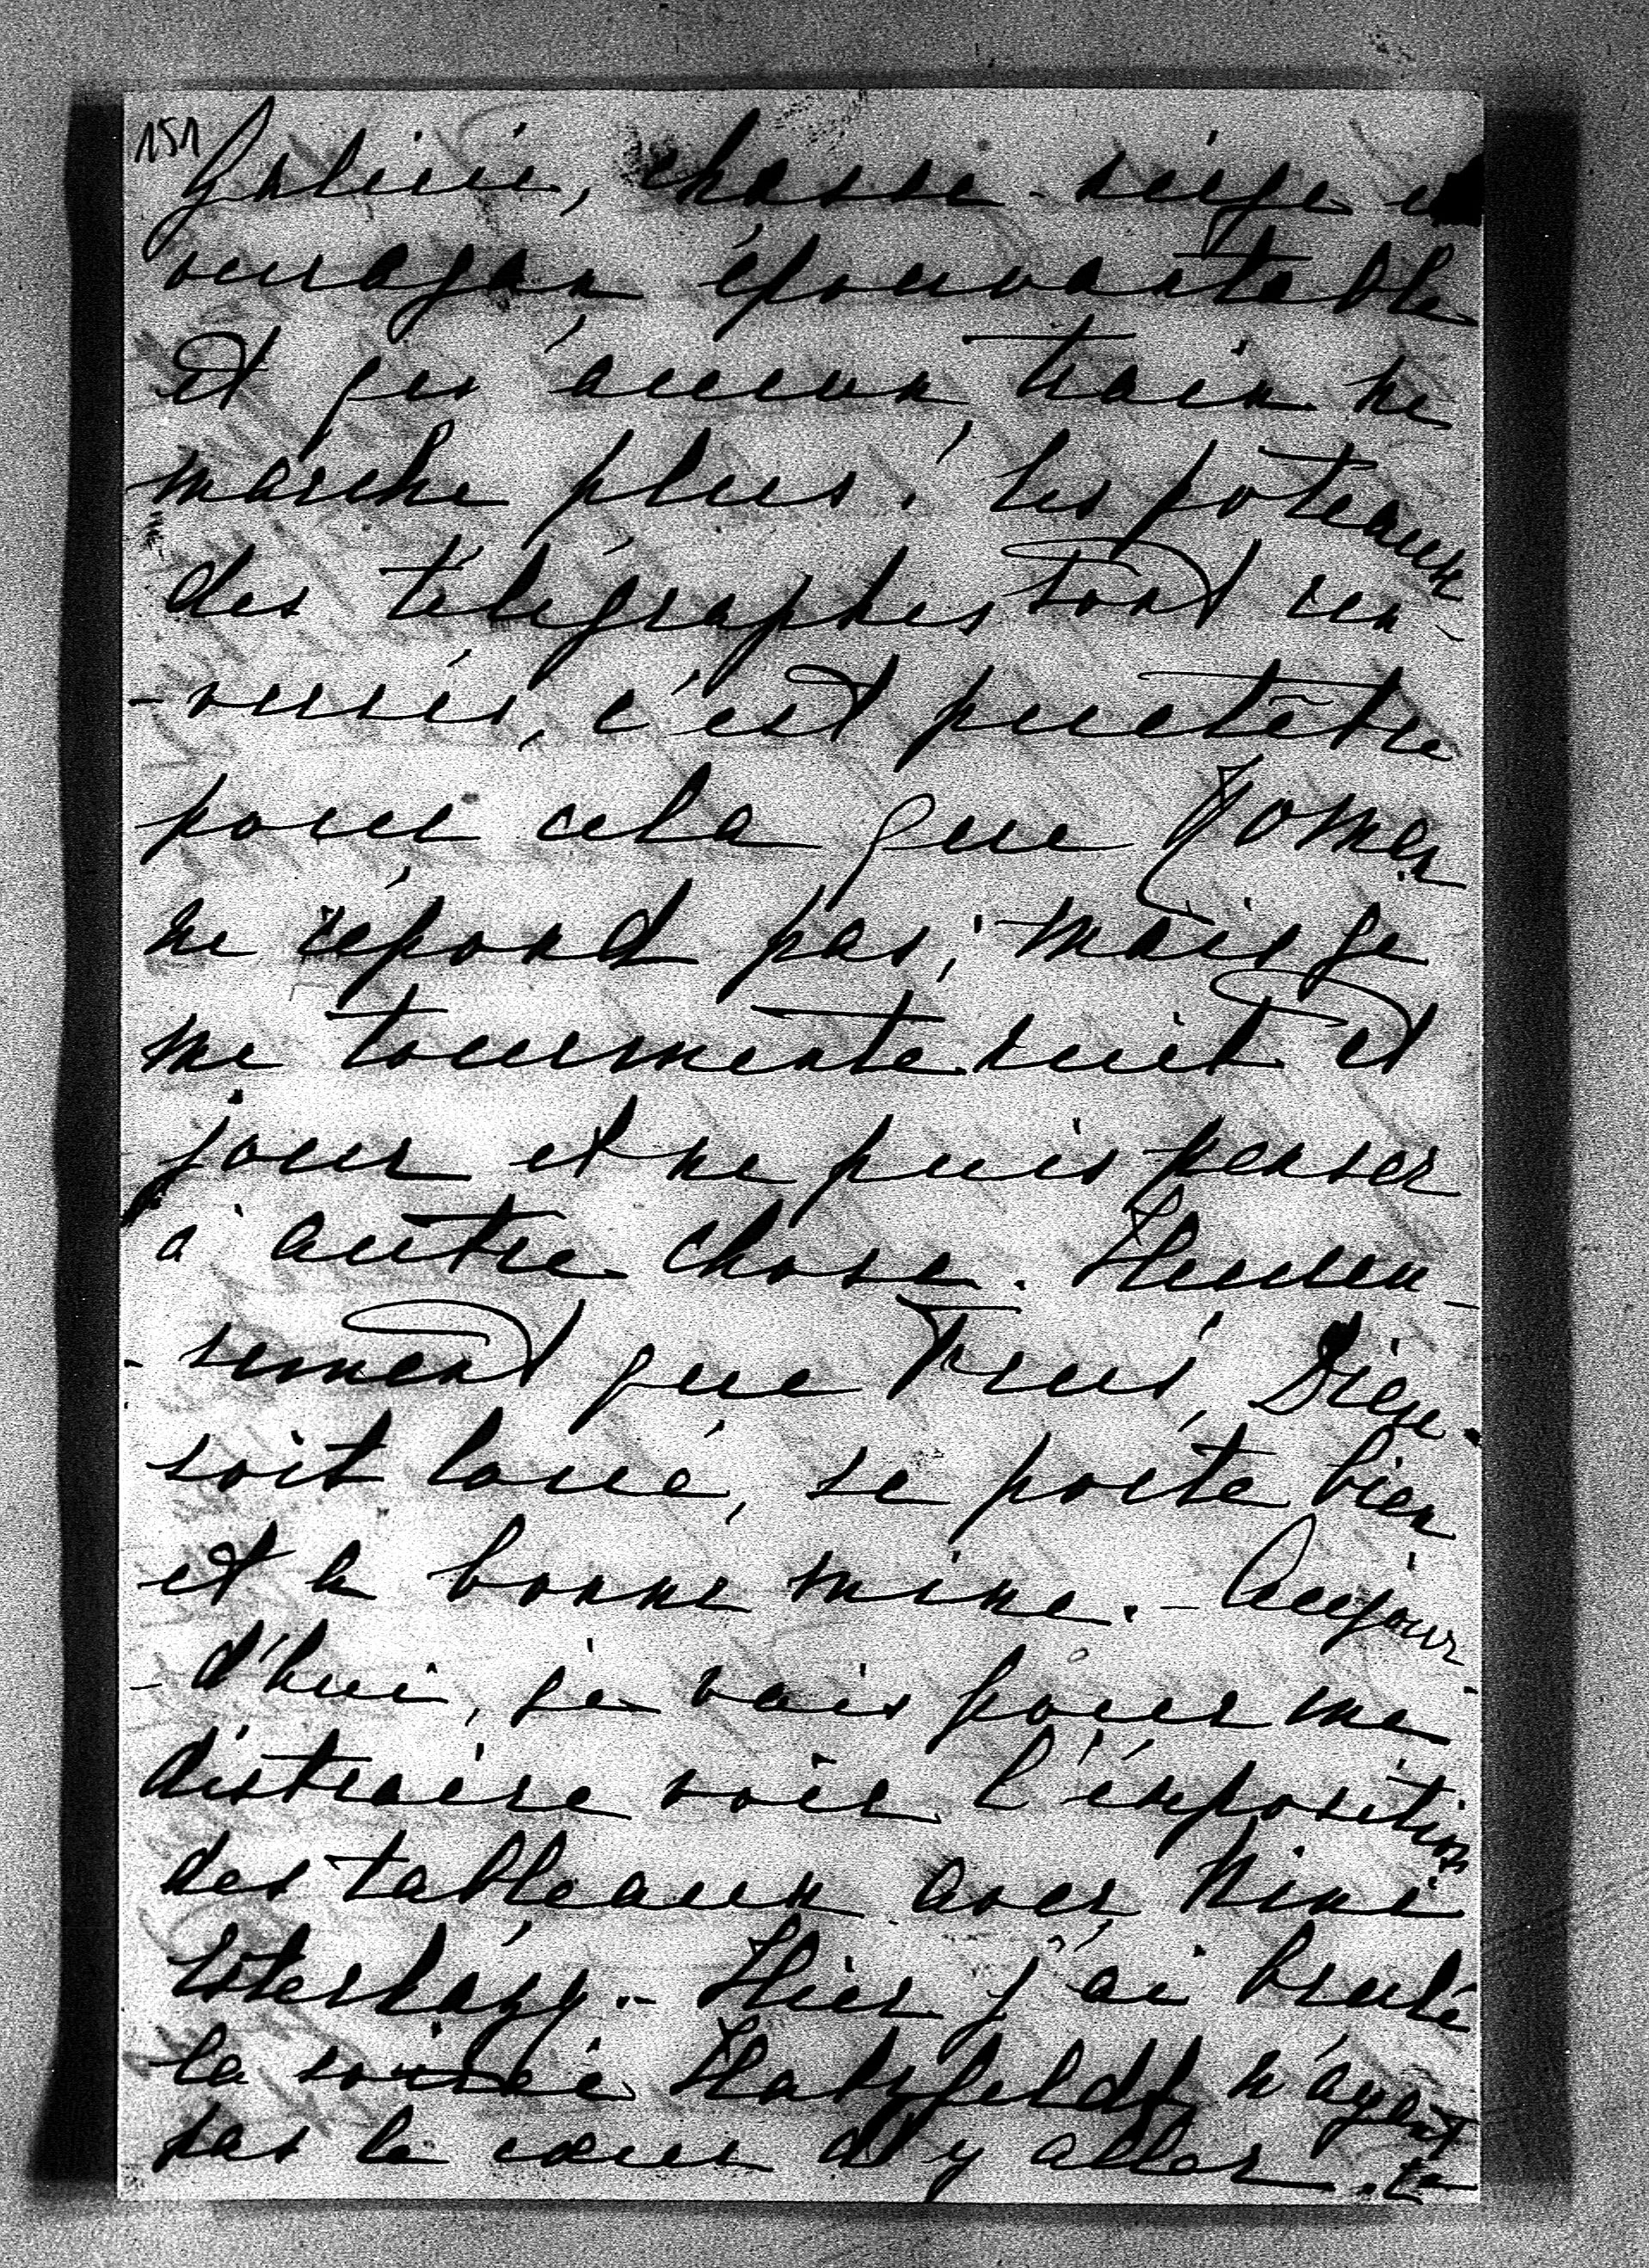 151
Galicie, chasse-neige et
ouragan épouvantable
et qu'aucun train ne
marche plus. Les poteaux
des télégraphes sont ren-
-versés, c'est peutêtre
pour cela que Roman
ne répond pas; mais je
me tourmente nuit et
jour et ne puis penser
à autre chose. Heureu-
-sement que Dieu
soit loué, se porte bien
et a bonne mine. - Aujour-
-d'hui, je vais pour me
distraire voir l'exposition
des tableaux avec Nini
Esterhazy. - Hier j'ai brulé
la soirée Hatzfeldt n'ayant
pas le cœur d'y aller.